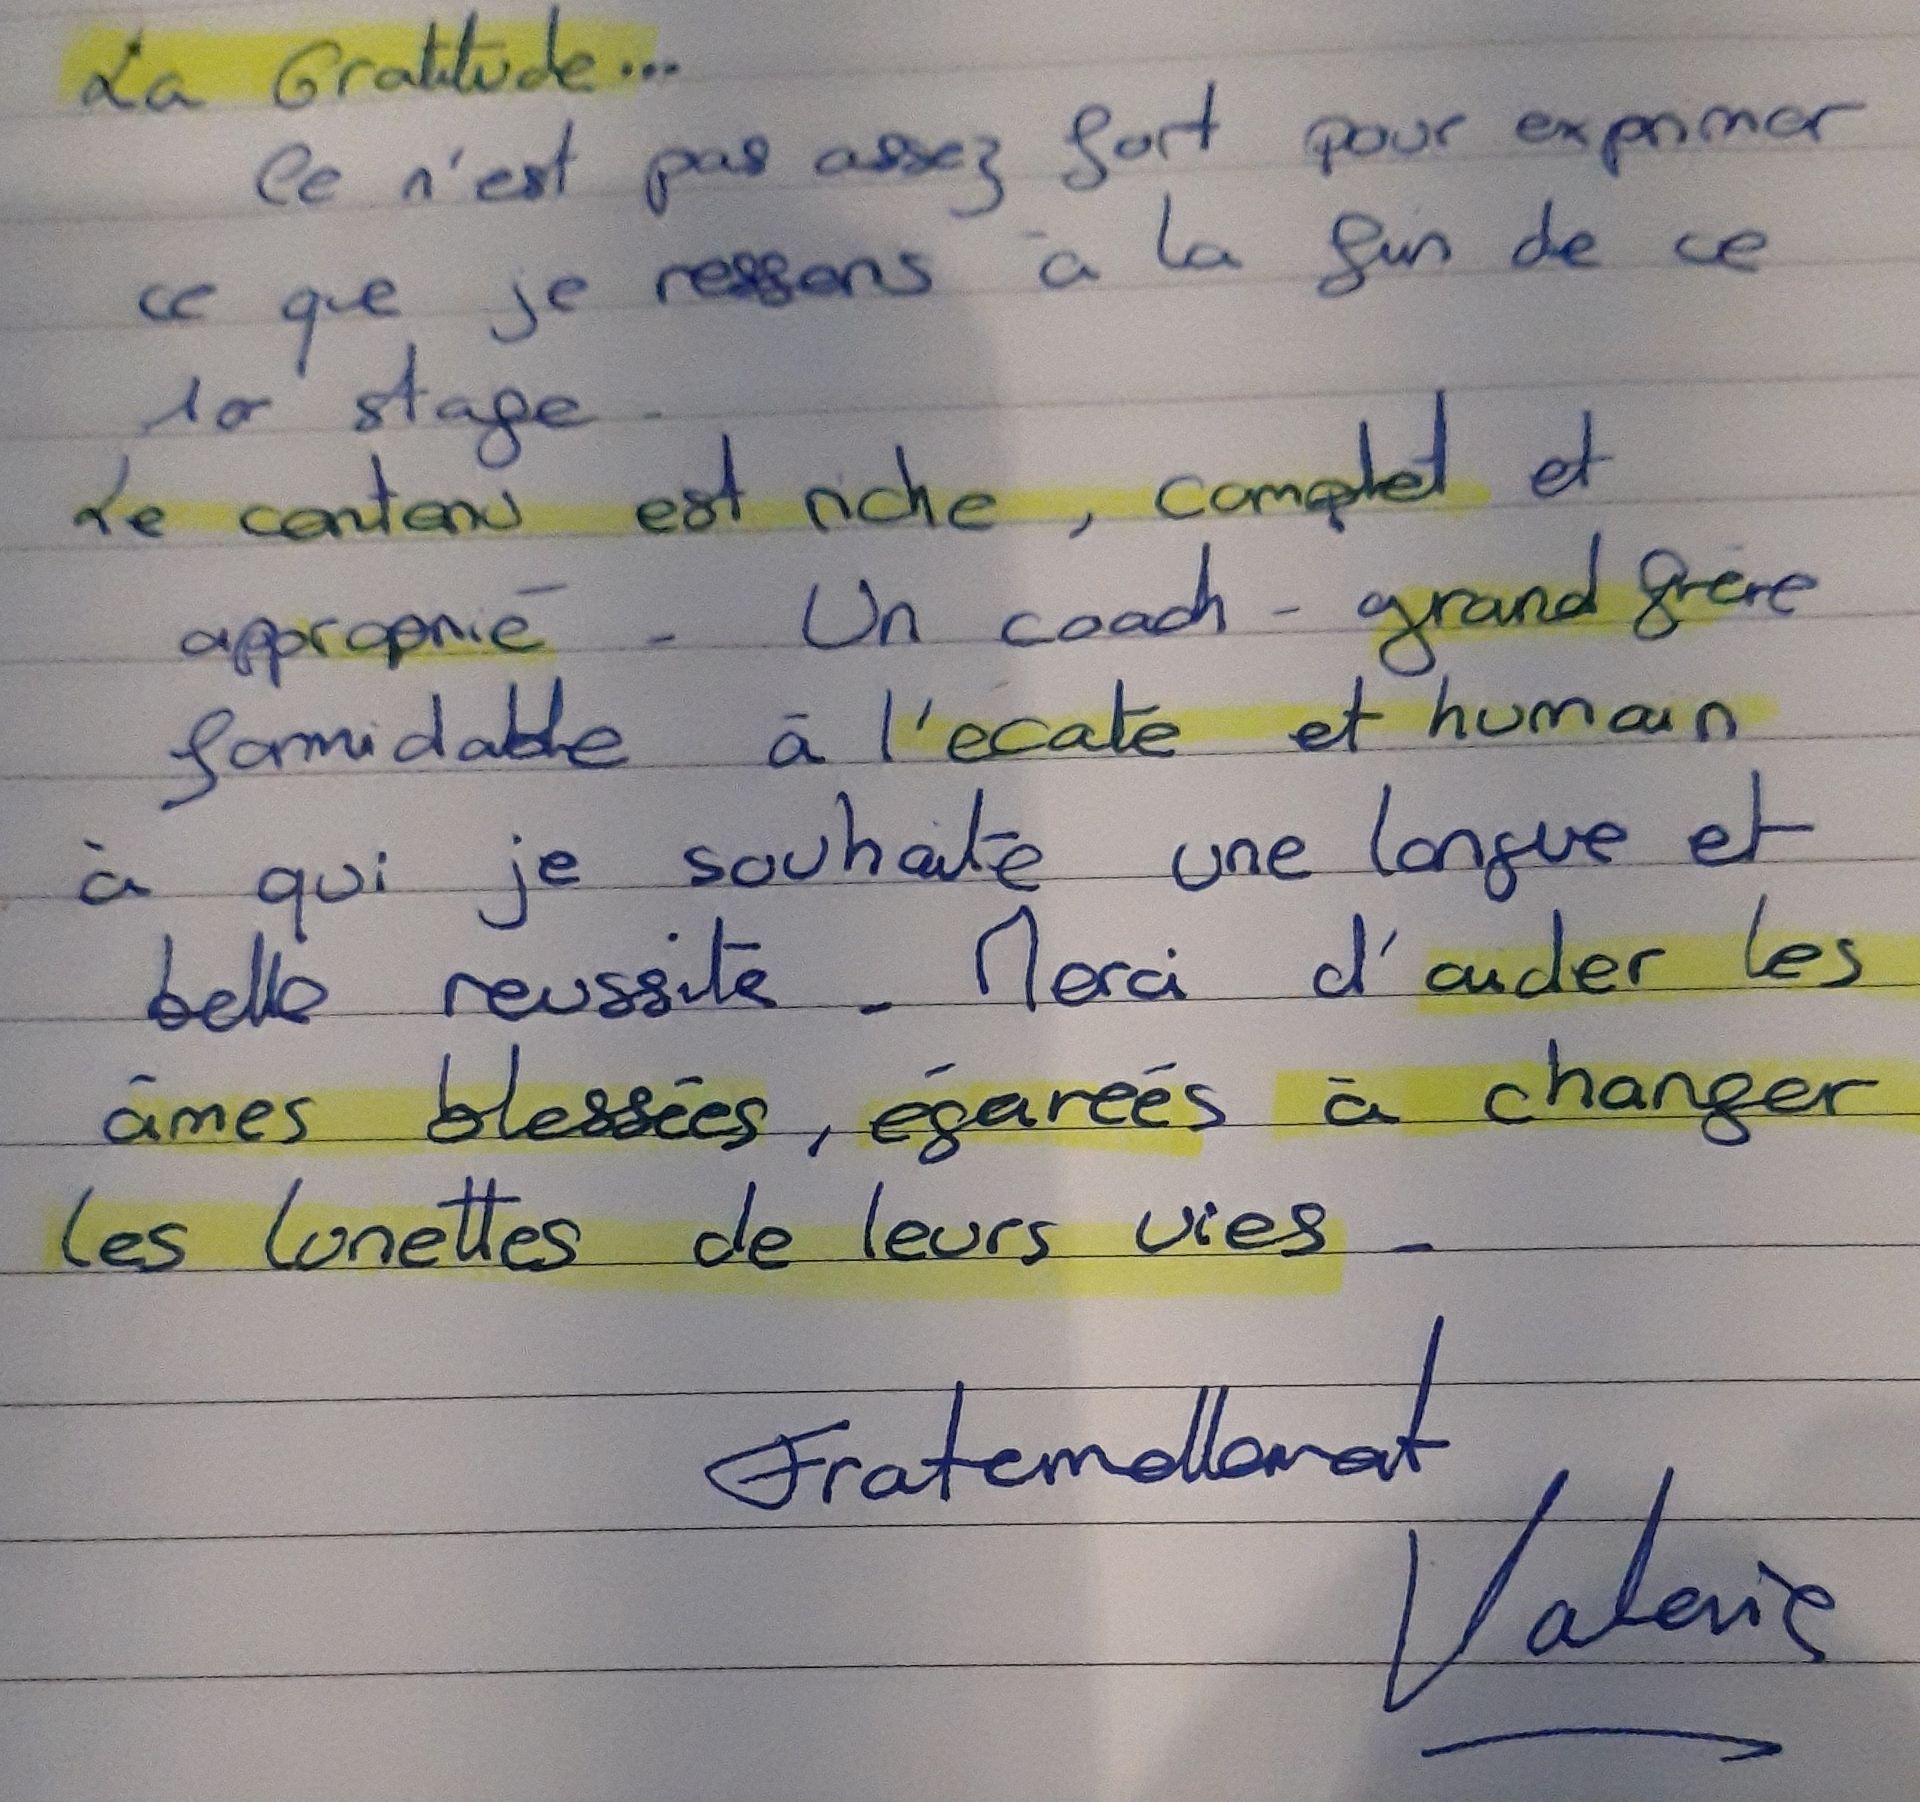 La Gratitude...
Ce n'est pas assez fort pour exprimer
ce que je ressens à la fin de ce
1er stage.
Le contenu est riche, complet et
approprié - Un coach - grand frère
formidable à l'écoute et humain
à qui je souhaite une longue et
belle réussite - Merci d'aider les
âmes blessées, égarées à changer
les lunettes de leurs vies -
Fraternellement
Valérie